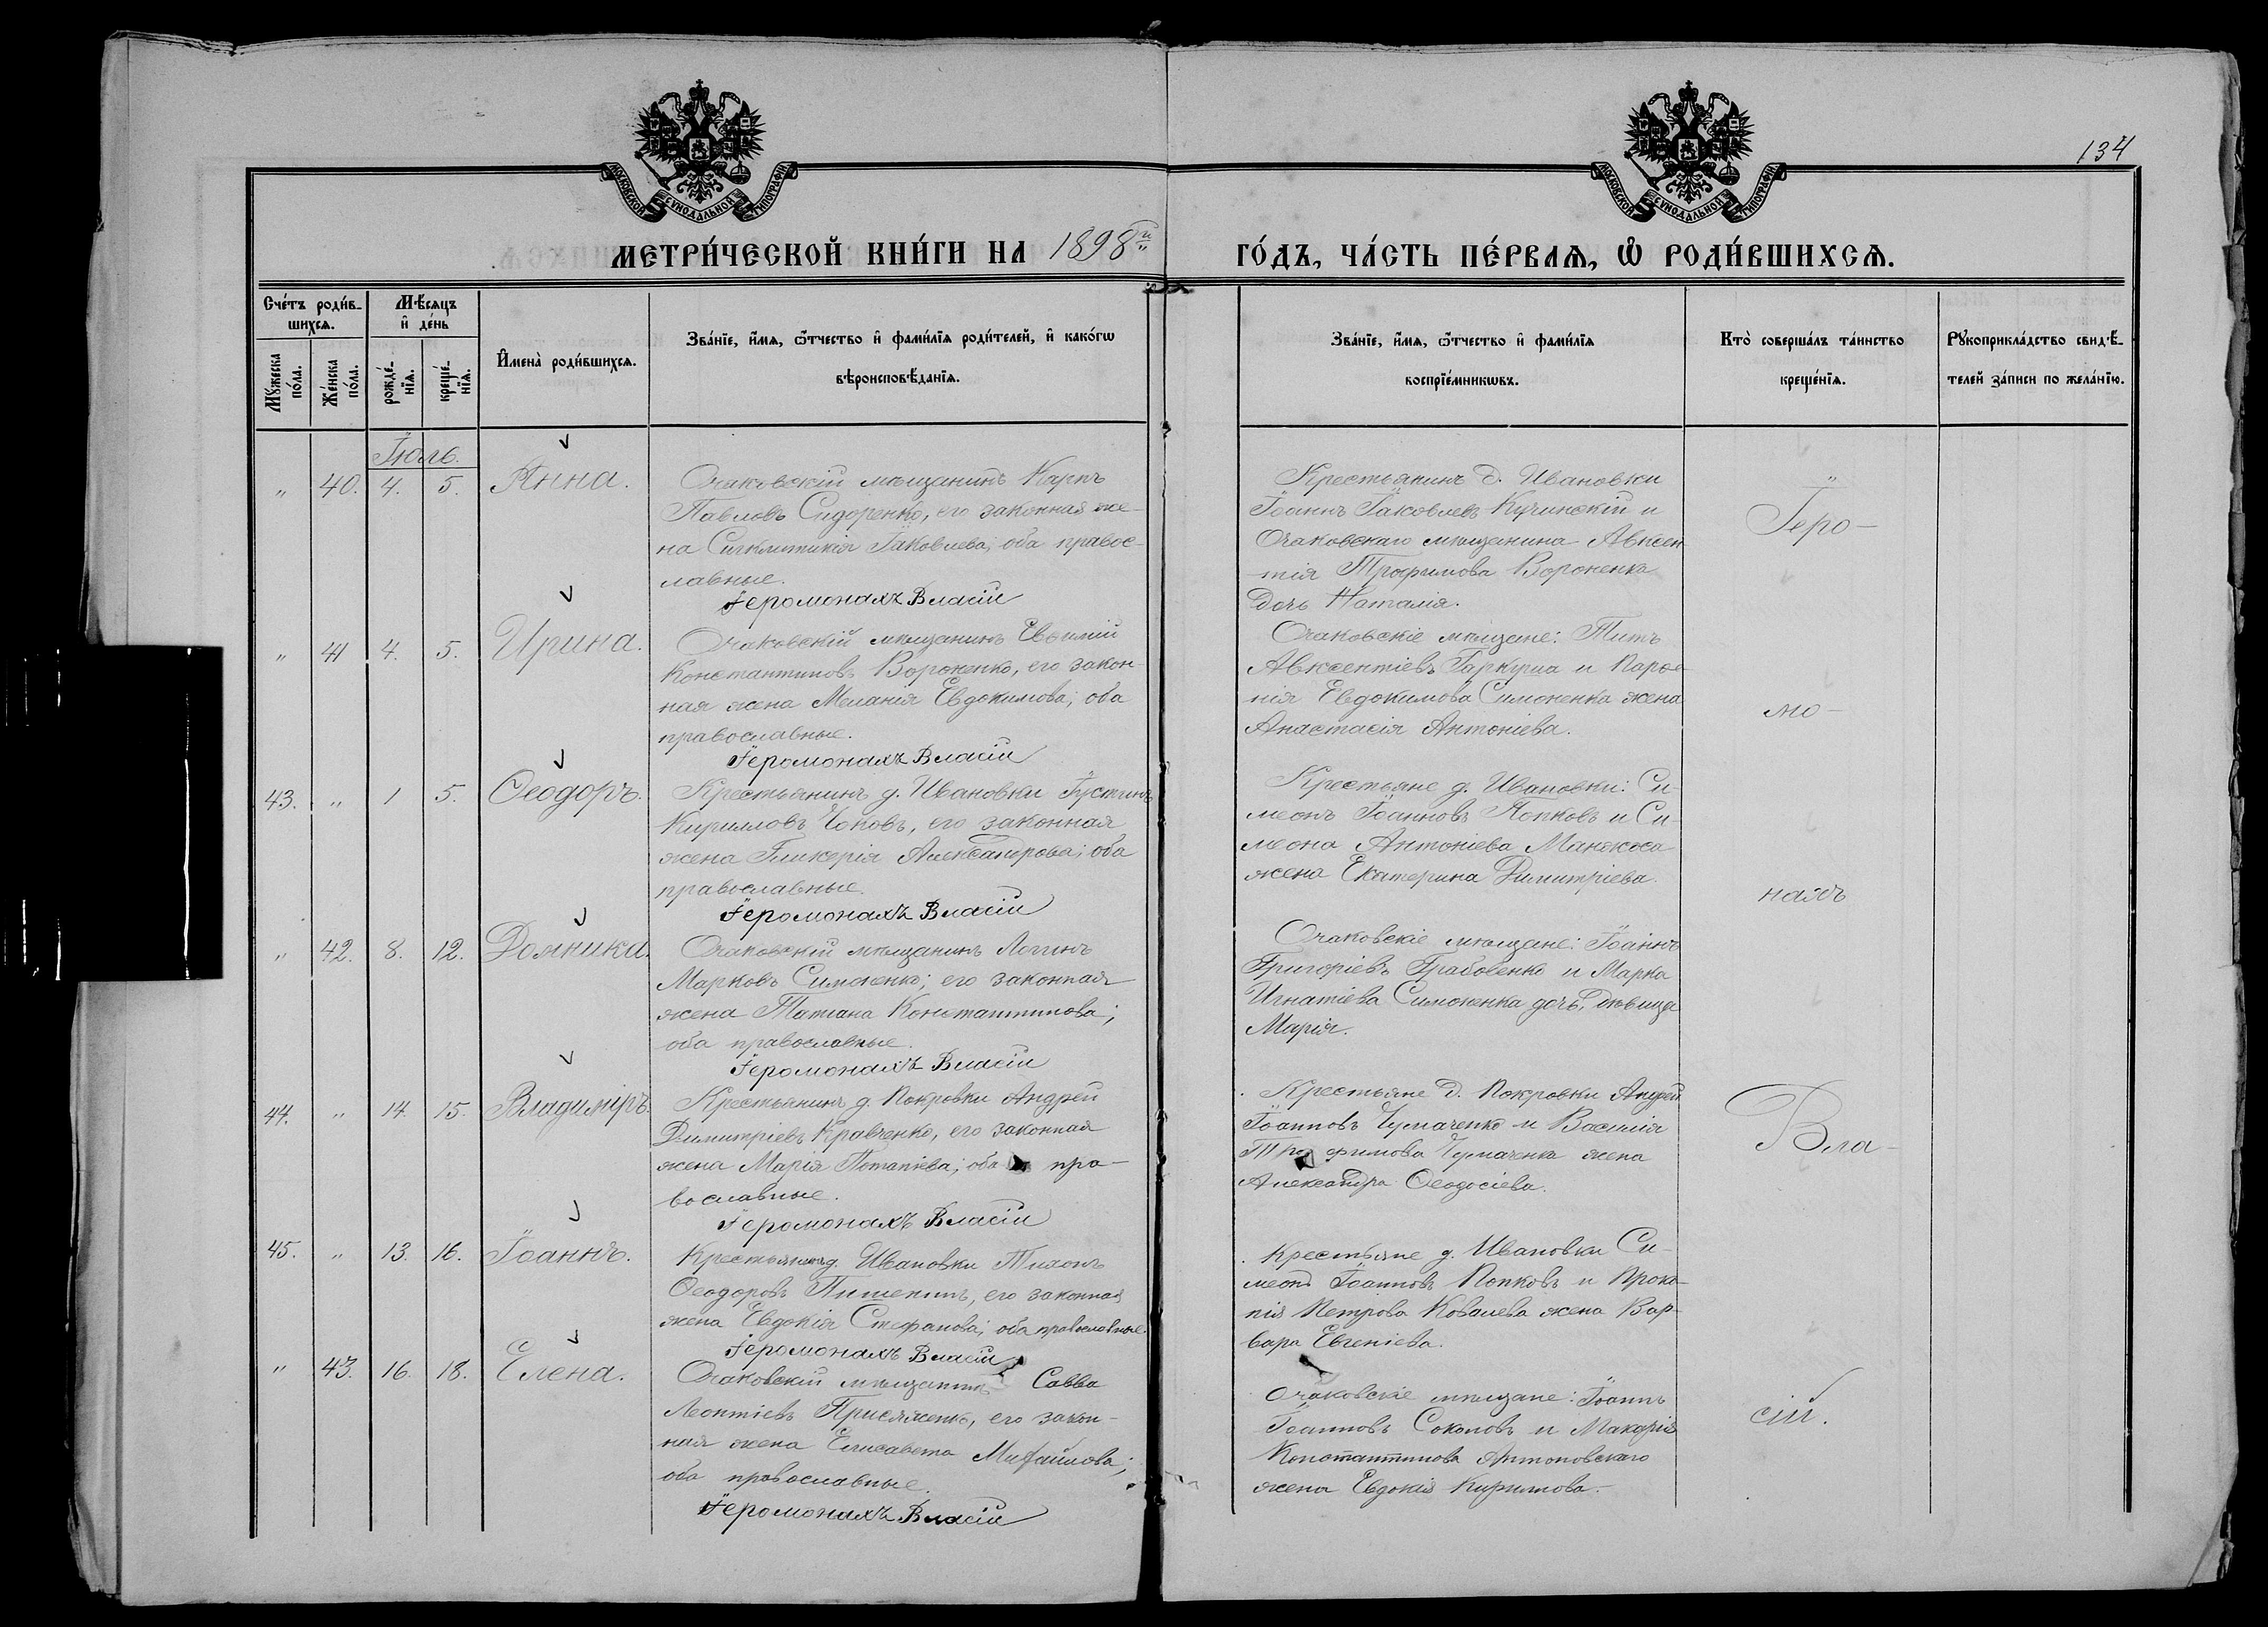 134
МОСКОВСКОЙ СѴНОДАЛЬНОЙ ТИПОГРАФІИ
МОСКОВСКОЙ СѴНОДАЛЬНОЙ ТИПОГРАФІИ
МЕТРИ́ЧЕСКОЙ КНИ́ГИ НА 1898й ГО́ДЪ, ЧА́СТЬ ПЕ́РВАѦ, Ѡ҆ РОДИ́ВШИХСѦ.
Сче́тъ роди́в-
шихсѧ.
Мꙋ́жеска
по́ла.
Же́нска
по́ла.
Мѣ́сѧцъ
и҆ де́нь
рожде́-
нїѧ.
креще́-
нїѧ.
И҆мена̀ роди́вшихсѧ.
Зва́нїе, и҆́мѧ, ѻ҆́тчество и҆ фами́лїѧ роди́телей, и҆ како́гѡ
вѣроисповѣ́данїѧ.
Зва́нїе, и҆́мѧ, ѻ҆́тчество и҆ фами́лїѧ
воспрїе́мникѡвъ.
Кто̀ соверша́лъ та́инство
креще́нїѧ.
Рꙋкоприкла́дство свидѣ́-
телей за́писи по жела́нїю.
Іюль.
" 40. 4. 5. Анна.
Очаковскій мѣщанинъ Карпъ
Павловъ Сидоренко, его законная же-
на Сигклитикія Іаковлева; оба правос-
лавные.
Іеромонахъ Власій
Крестьянинъ д. Ивановки
Іоаннъ Іаковлевъ Кучинскій и
Очаковскаго мѣщанина Авксен
тія Трофимова Вороненка
дочь Наталія.
Іеро-
" 41 4. 5. Ирина.
Очаковскій мѣщанинъ Евѳимій
Константиновъ Вороненко, его закон-
ная жена Меланія Евдокимова; оба
православные.
Іеромонахъ Власій
Очаковскіе мѣщане: Титъ
Авксентіевъ Гаркуша и Парѳе
нія Евдокимова Симоненка жена
Анастасія Антоніева.
мо-
43. " 1 5. Ѳеодоръ.
Крестьянинъ д. Ивановки Іустинъ
Кирилловъ Чоковъ, его законная
жена Гликерія Александрова; оба
православные.
Іеромонахъ Власій
Крестьяне д. Ивановки: Си-
меонъ Іоанновъ Попковъ и Си-
меона Антоніева Манжоса
жена Екатерина Димитріева.
нахъ
" 42. 8. 12. Домника.
Очаковскій мѣщанинъ Логинъ
Марковъ Симоненко; его законная
жена Татіана Константинова;
оба православные.
Іеромонахъ Власій
Очаковскіе мѣщане: Іоаннъ
Григоріевъ Грабовенко и Марка
Игнатіева Симоненка дочь, дѣвица
Марія.
44. " 14. 15. Владиміръ.
Крестьянинъ д. Покровки Андрей
Димитріевъ Кравченко, его законная
жена Марія Потапіева; оба пра-
вославные.
Іеромонахъ Власій
Крестьяне д. Покровки Андрей
Іоанновъ Чумаченко и Василія
Трофимова Чумаченка жена
Александра Ѳеодосіева.
Вла-
45. " 13. 16. Іоаннъ.
Крестьянинъ д. Ивановки Тихонъ
Ѳеодоровъ его законная
жена Евдокія Стефанова; оба православные.
Іеромонахъ Власій
Крестьяне д. Ивановки Си-
меонъ Іоанновъ Попковъ и Проко-
пія Петрова Ковалева жена Вар-
вара Евгеніева.
" 43. 16. 18. Елена.
Очаковскій мѣщанинъ Савва
Леонтіевъ Присяженко, его закон-
ная жена Елисавета Михайлова;
оба православные.
Іеромонахъ Власій
Очаковскіе мѣщане: Іоаннъ
Іоанновъ Соколовъ и Макарія
Константинова Антоновскаго
жена Евдокія Кириллова.
сій.